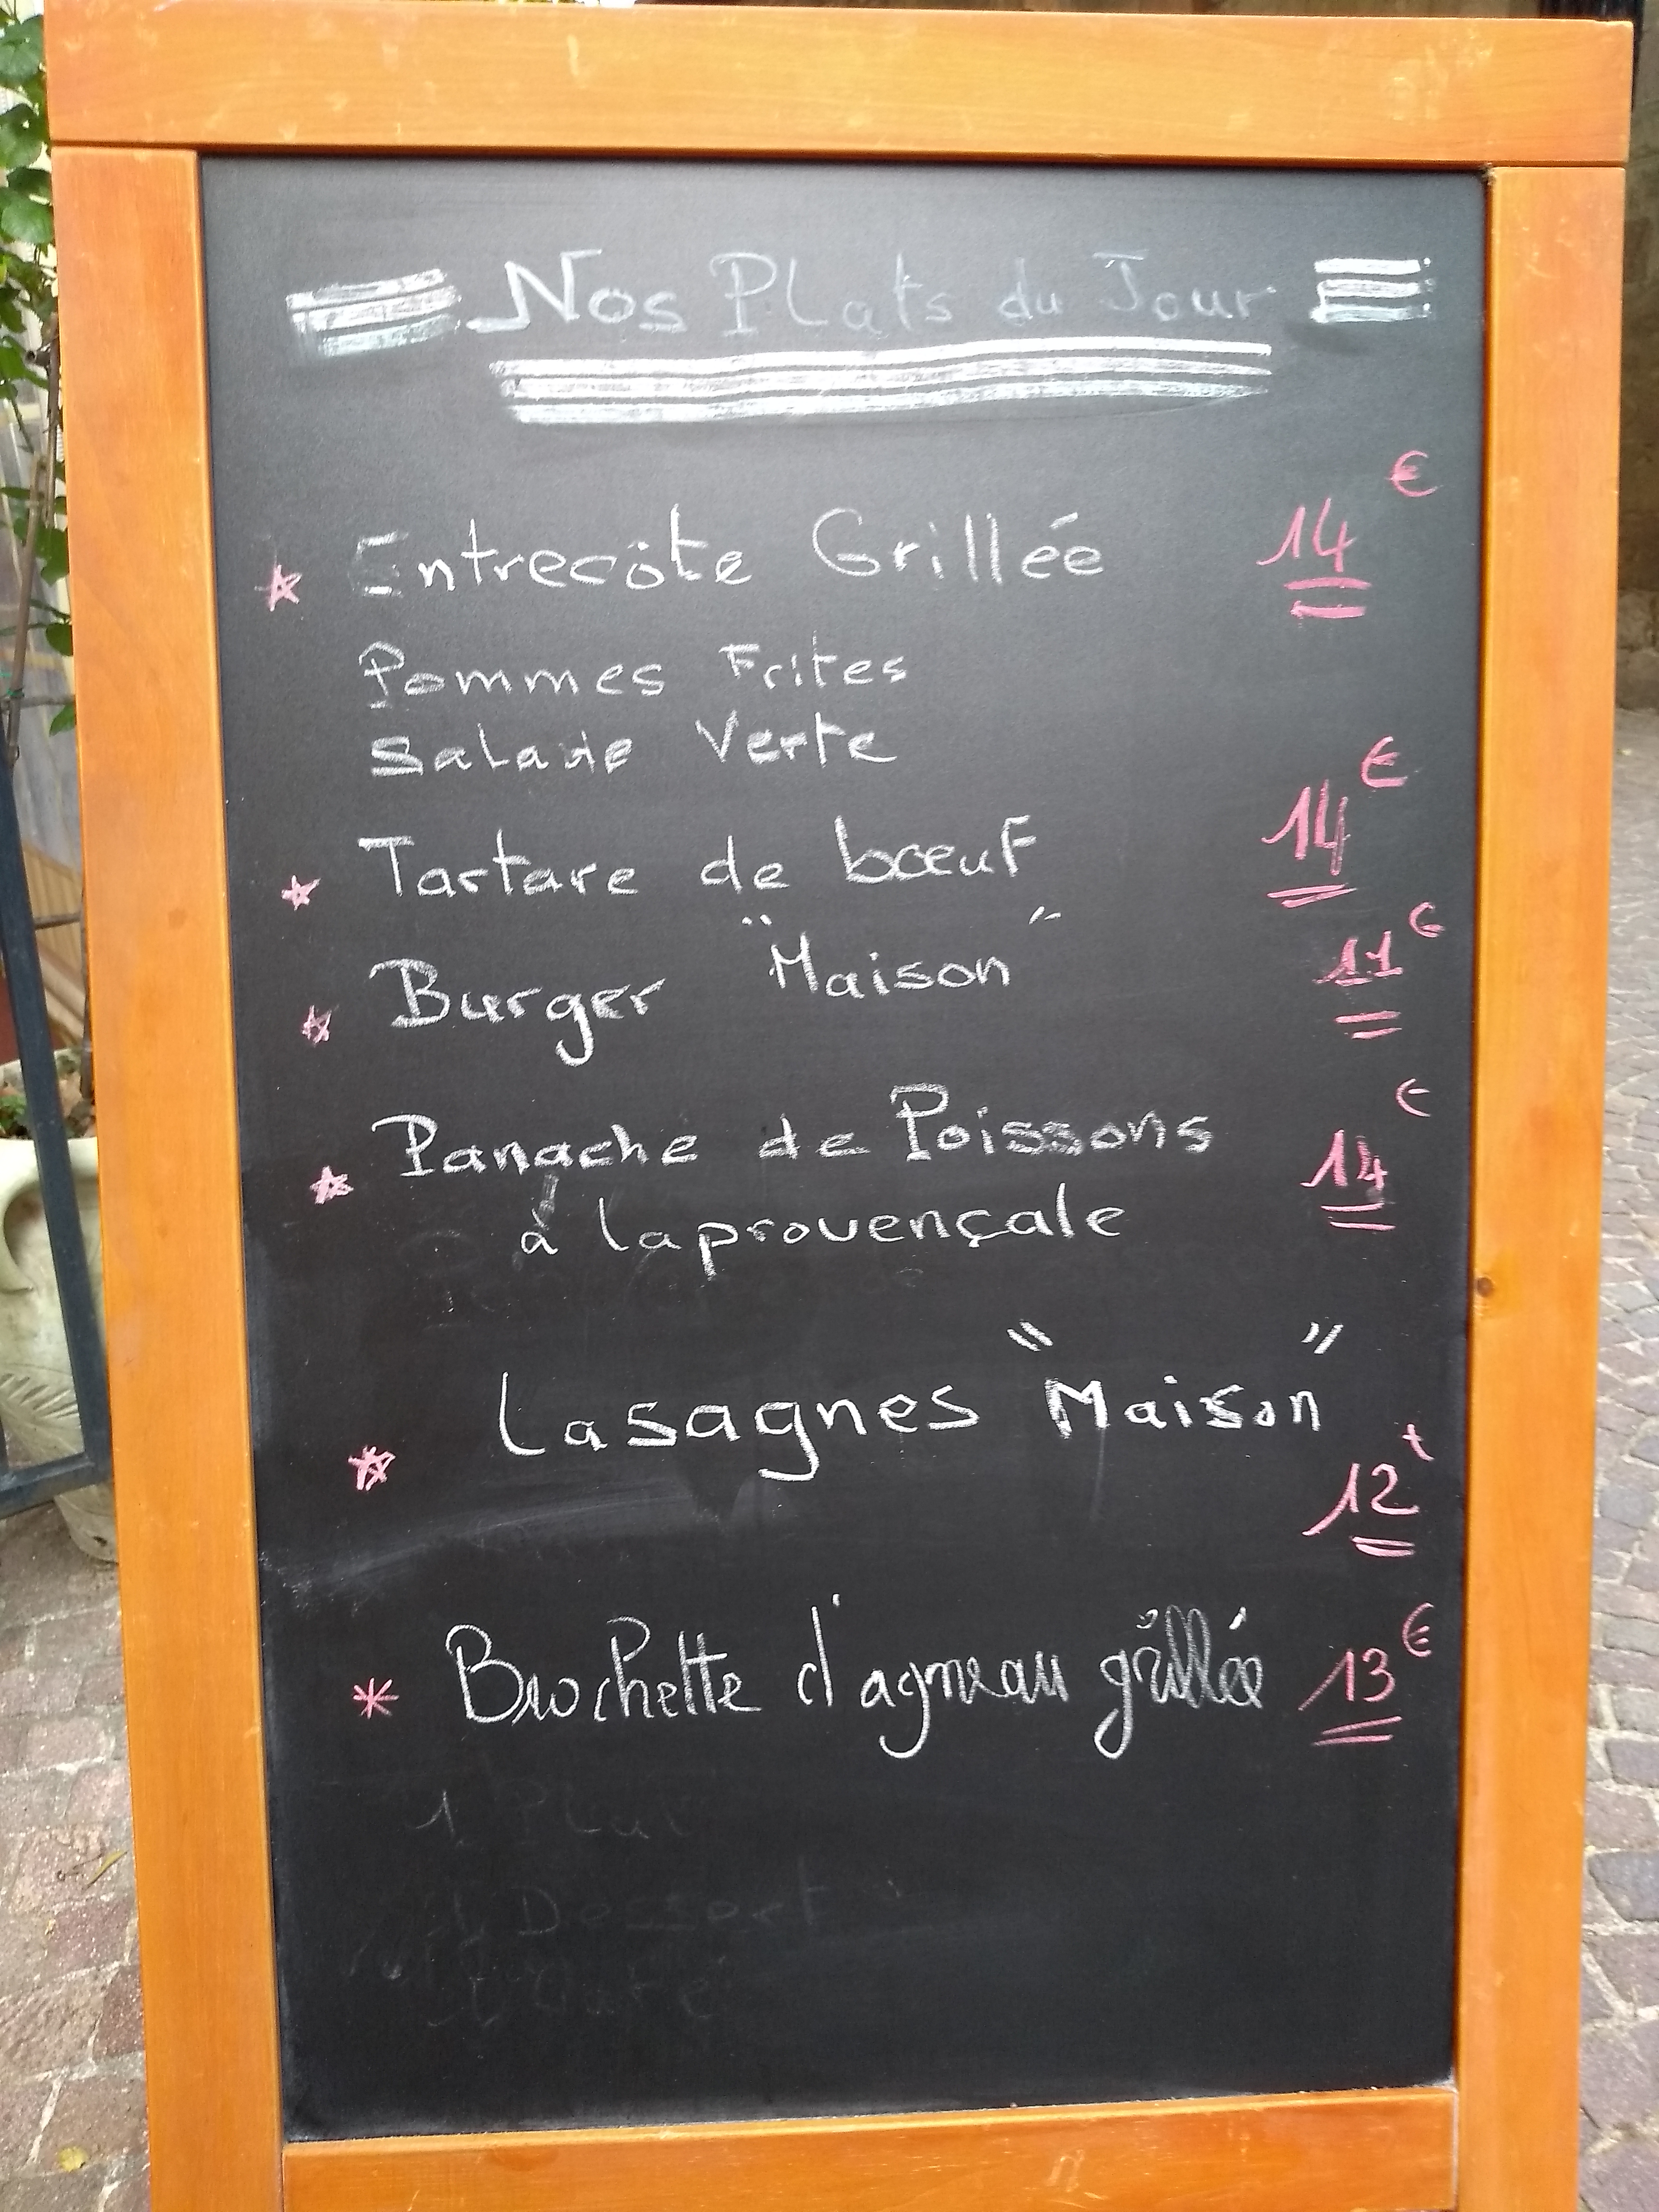 Nos Plats du Jour
Entrecôte Grillée 14 €
Pommes Frites
Salade Verte
Tartare de bœuf 14 €
Burger "Maison" 11 €
Panache de Poissons 14 €
à la provençale
Lasagnes "Maison"
12 €
Brochette d'agneau grillée 13 €
1 Plat
1 Dessert